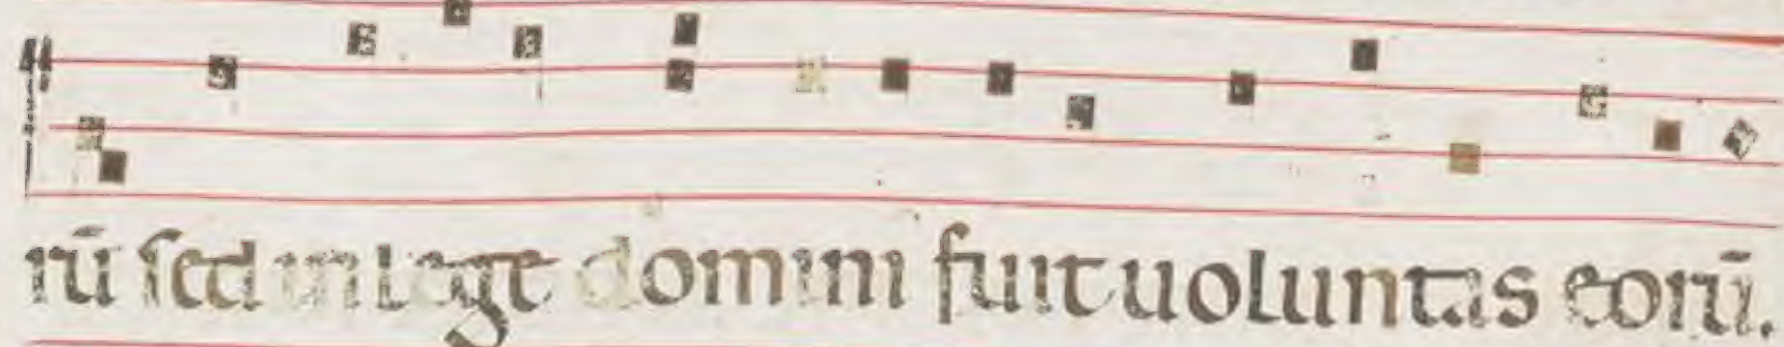 rū sed in lege domini fuit uoluntas eorū.